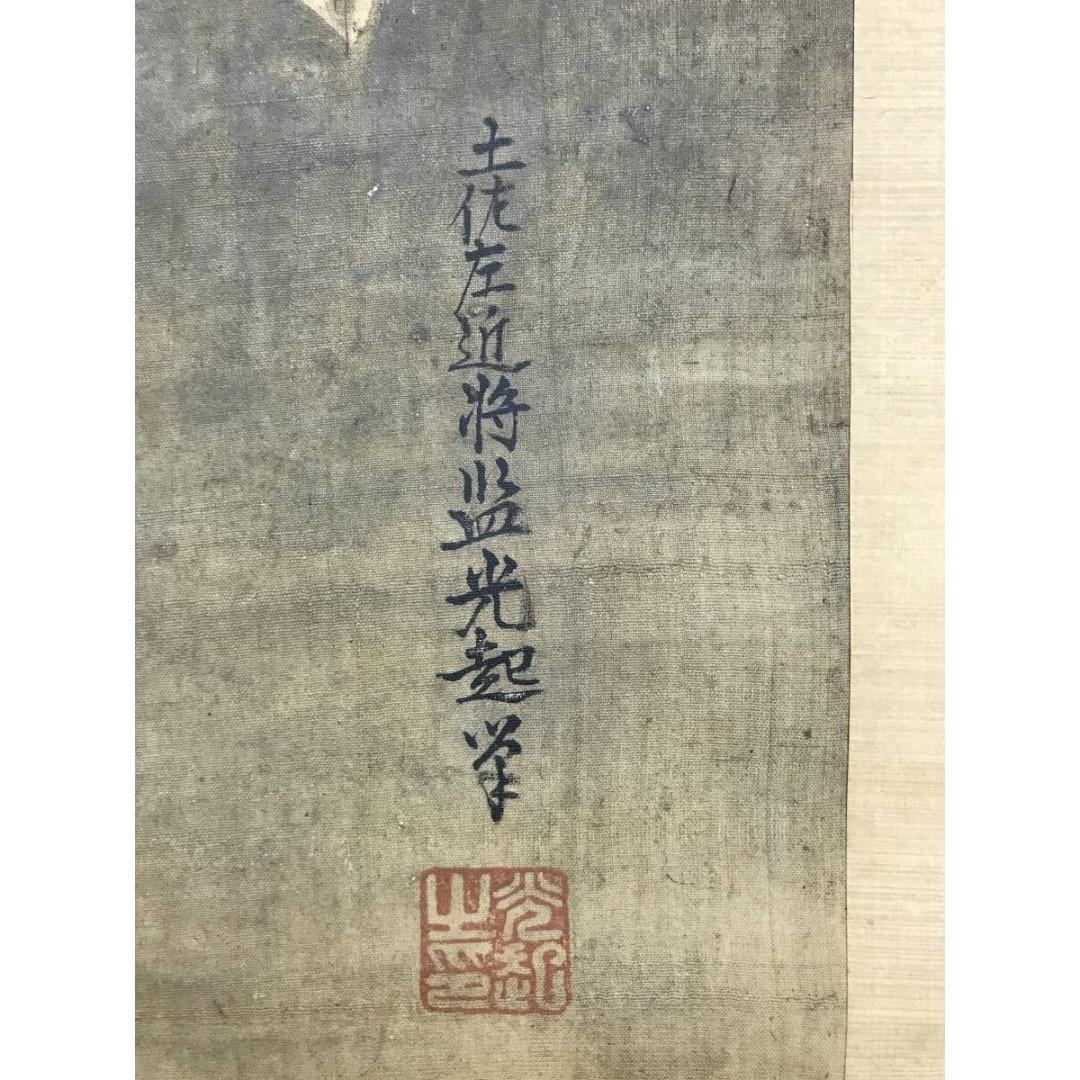 土佐左近将監光起筆
光起
之印